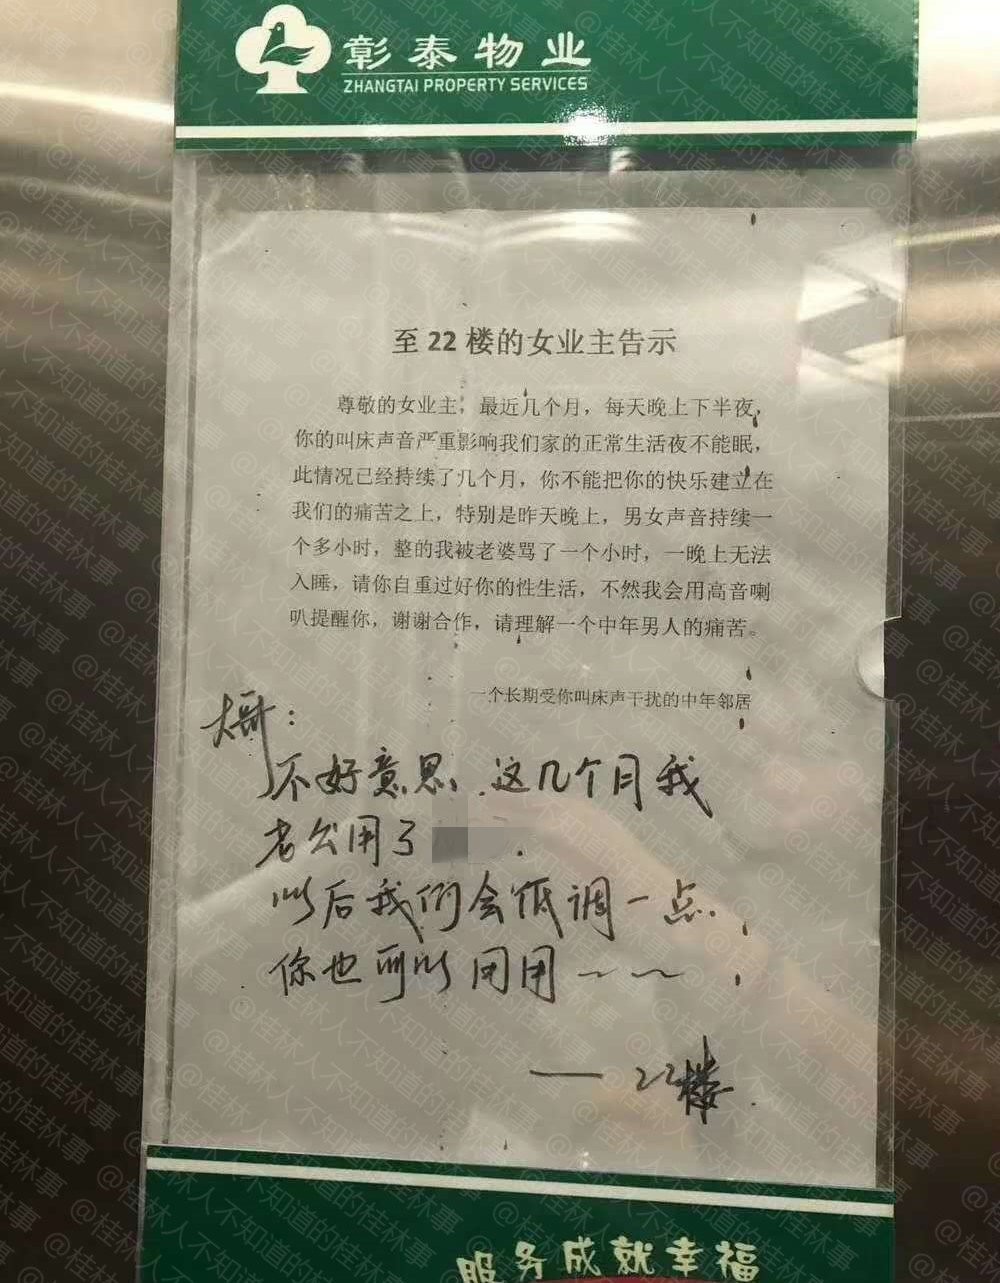 彰泰物业
ZHANGTAI PROPERTY SERVICES
至 22 楼的女业主告示
尊敬的女业主，最近几个月，每天晚上下半夜，
你的叫床声音严重影响我们家的正常生活夜不能眠，
此情况已经持续了几个月，你不能把你的快乐建立在
我们的痛苦之上，特别是昨天晚上，男女声音持续一
个多小时，整的我被老婆骂了一个小时，一晚上无法
入睡，请你自重过好你的性生活，不然我会用高音喇
叭提醒你，谢谢合作，请理解一个中年男人的痛苦。
一个长期受你叫床声干扰的中年邻居
大哥：
不好意思，这几个月我
老公用了
以后我们会低调一点.
你也可以用用~~
—— 22楼
服务成就幸福
@桂林人不知道的桂林事